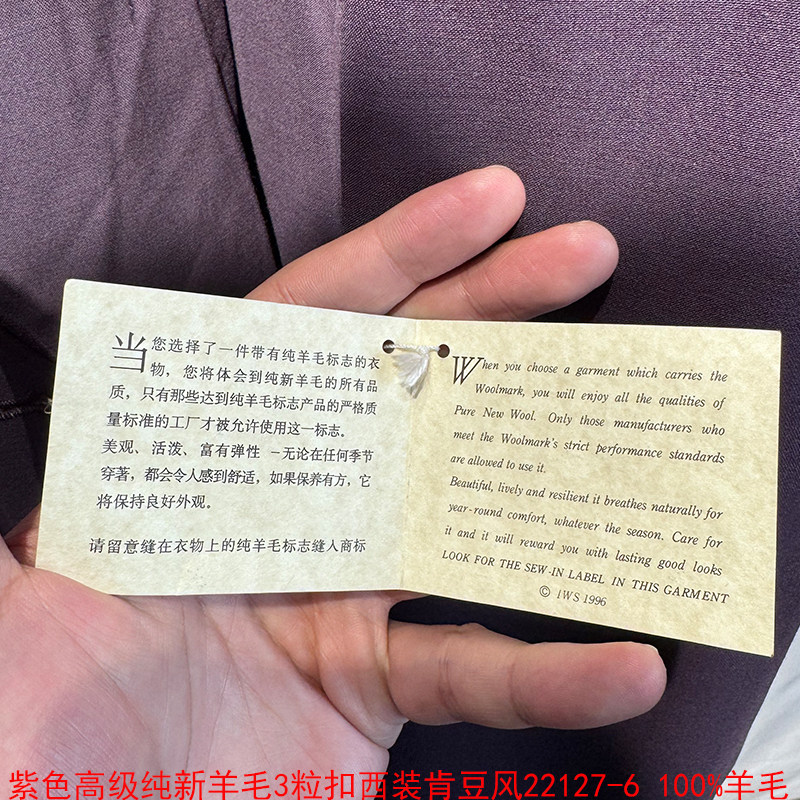 当您选择了一件带有纯羊毛标志的衣
物，您将体会到纯新羊毛的所有品
质，只有那些达到纯羊毛标志产品的严格质
量标准的工厂才被允许使用这一标志。
美观、活泼、富有弹性 －无论在任何季节
穿著，都会令人感到舒适，如果保养有方，它
将保持良好外观。
请留意缝在衣物上的纯羊毛标志缝人商标
When you choose a garment which carries the
Woolmark, you will enjoy all the qualities of
Pure New Wool. Only those manufacturers who
meet the Woolmark's strict performance standards
are allowed to use it.
Beautiful, lively and resilient it breathes naturally for
year-round comfort, whatever the season. Care for
it and it will reward you with lasting good looks
LOOK FOR THE SEW-IN LABEL IN THIS GARMENT
© IWS 1996
紫色高级纯新羊毛3粒扣西装肯豆风22127-6 100%羊毛